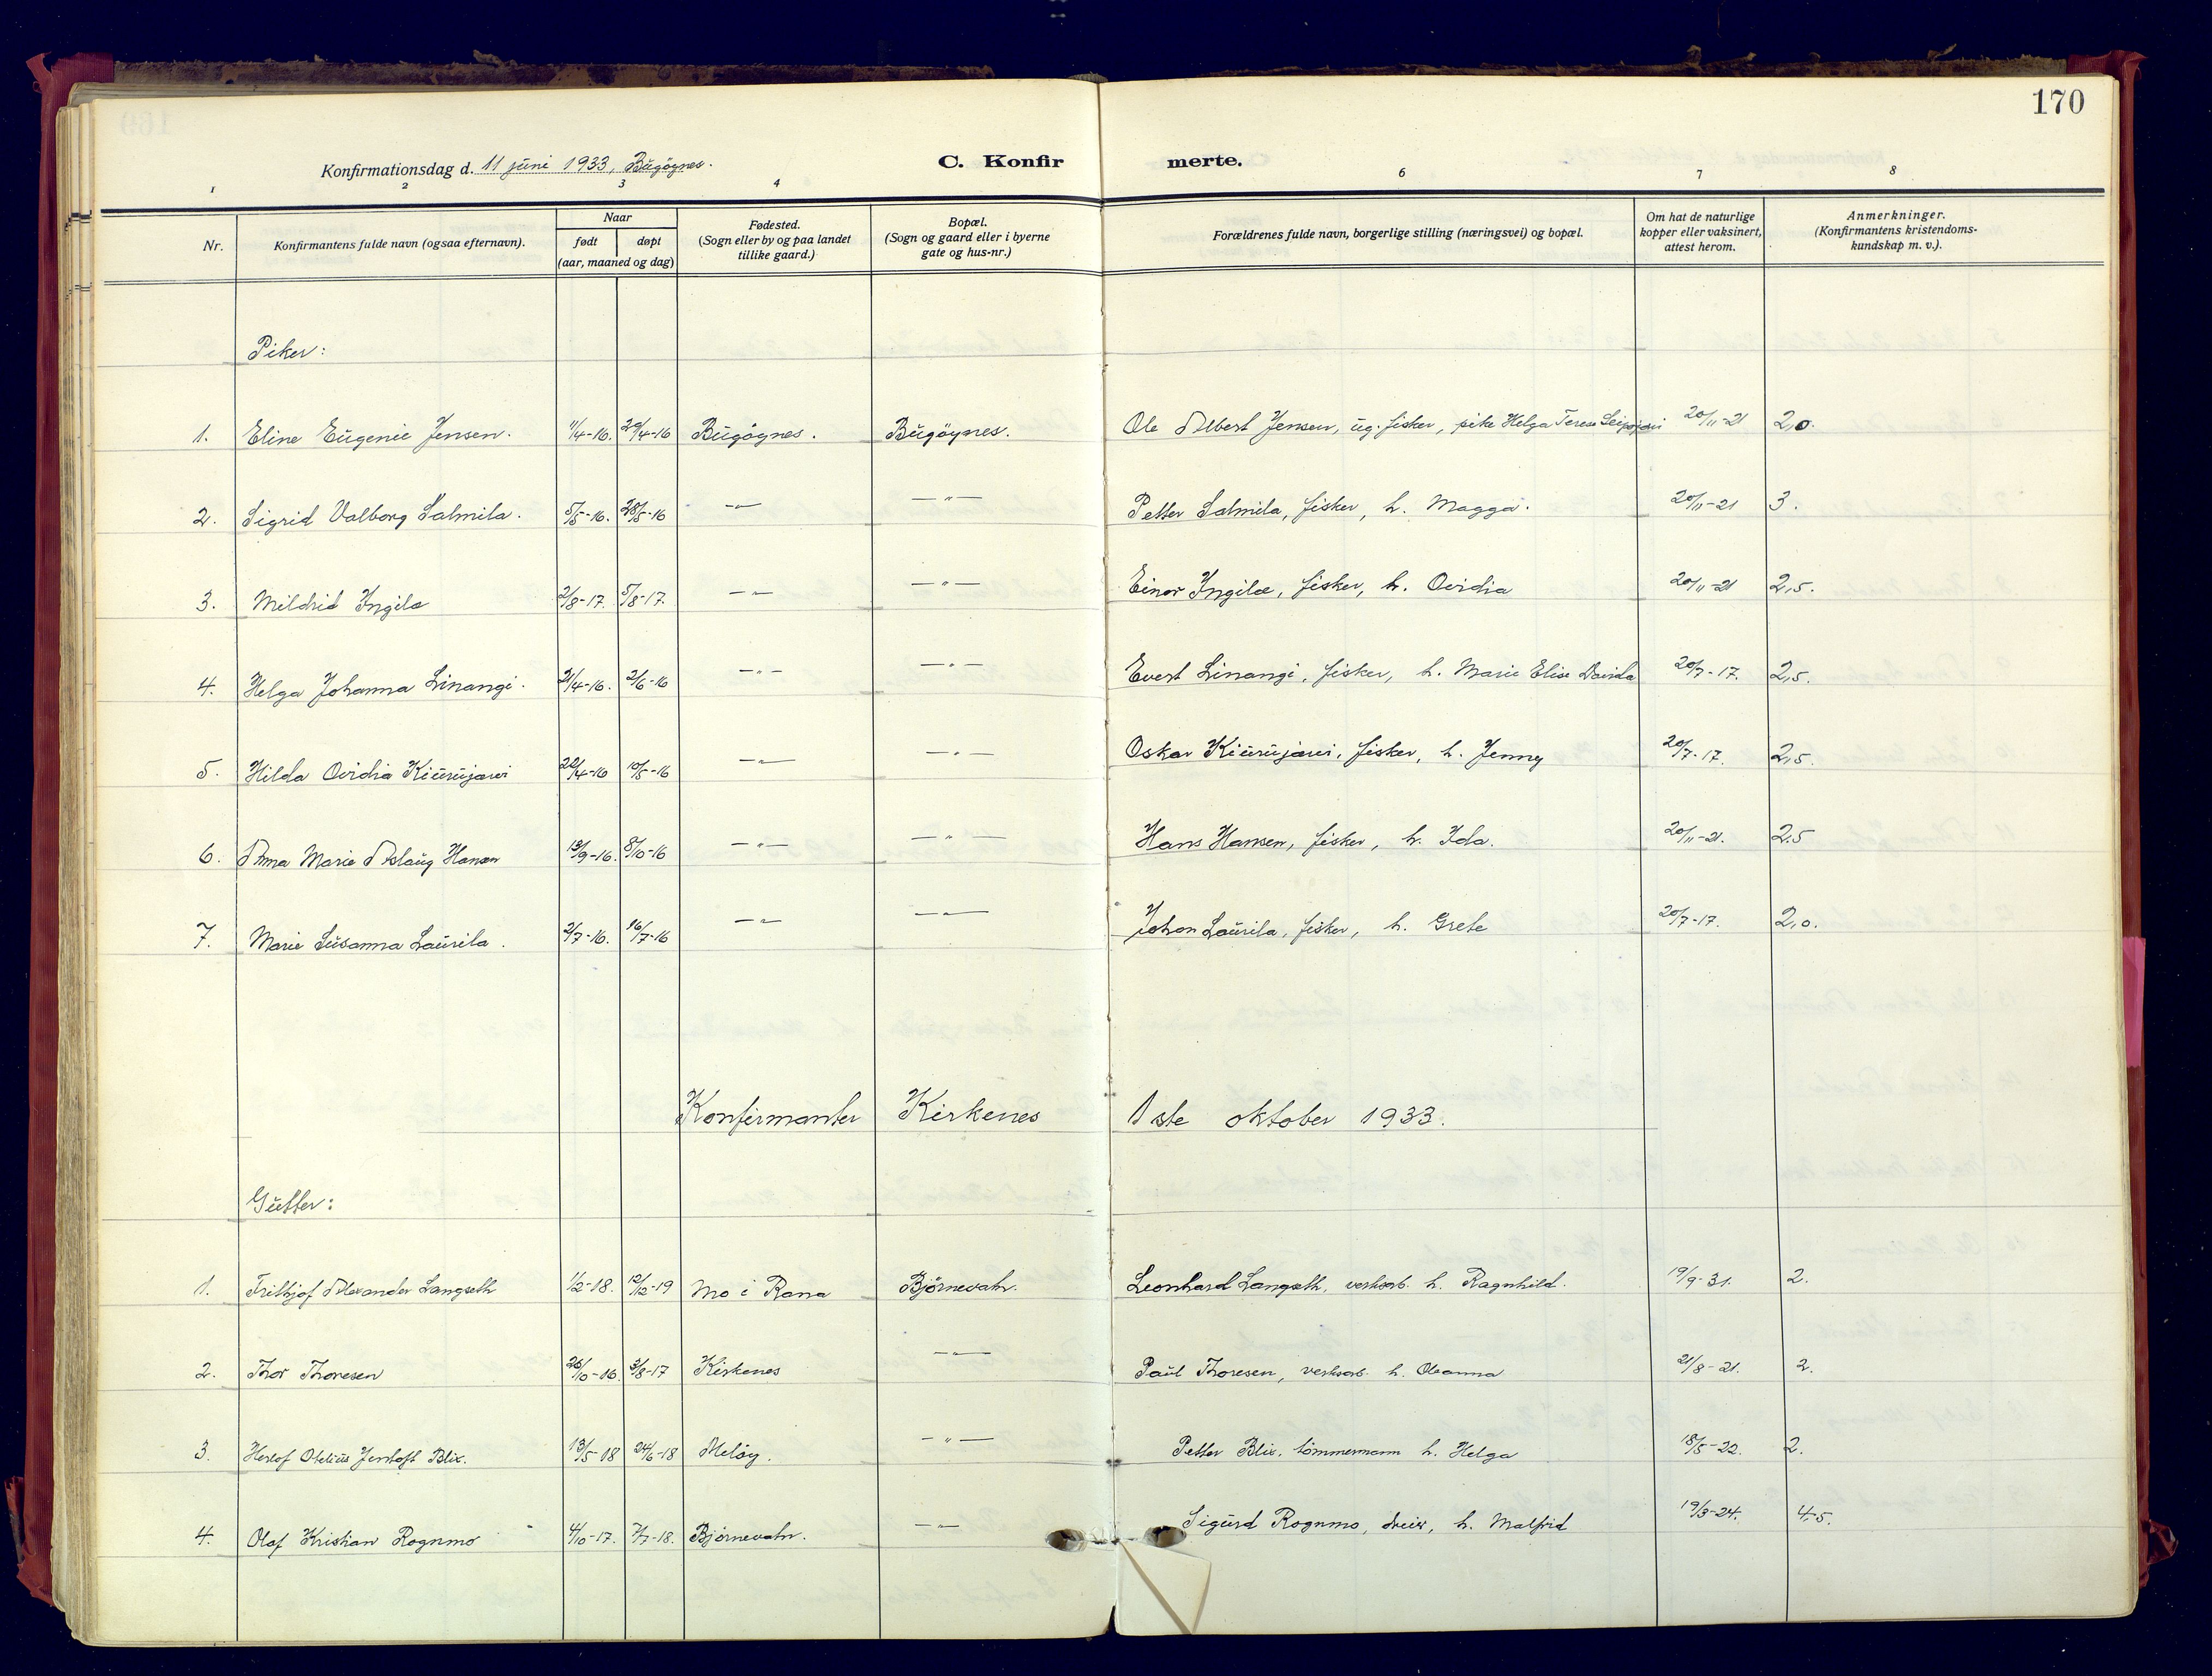 170
Konfirmationsdag d. 11 juni 1933, Bugøynes.
C. Konfirmerte.
1 2 3 4 6 7 8
Nr.
Konfirmantens fulde navn (ogsaa efternavn).
Naar
født døpt
(aar, maaned og dag)
Fødested.
(Sogn eller by og paa landet
tillike gaard.)
Bopæl.
(Sogn og gaard eller i byerne
gate og hus-nr.)
Forældrenes fulde navn, borgerlige stilling (næringsvei) og bopæl.
Om hat de naturlige
kopper eller vaksinert,
attest herom.
Anmerkninger.
(Konfirmantens kristendoms-
kundskap m. v.).
Piker:
1. Eline Eugenie Jensen. 11/4-16. 24/4-16 Bugøynes. Bugøynes. Ole Albert Jensen, ug. fisker, pike Helga Terese 20/11-21 2,0.
2. Sigrid Valborg Salmila. 5/5-16. 28/5-16 -"- -"- Petter Salmila, fisker, h. Magga. 20/11-21 3.
3. Mildrid Ingilæ 2/8-17. 5/8-17. -"- -"- Einar Ingilæ, fisker, h. Ovidia 20/11-21 2,5.
4. Helga Johanna Linangi. 21/4-16. 2/6-16 -"- -"- Evert Linangi, fisker, h. Marie Elise Davida 20/7-17. 2,5.
5. Hilda Ovidia Kiurujærvi 22/4-16 10/5-16 -"- -"- Oskar Kiurujærvi, fisker, h. Jenny 20/7-17. 2,5.
6. Anna Marie Aslaug Hansen 13/9-16. 8/10-16 -"- -"- Hans Hansen, fisker, h. Ida. 20/11-21. 2,5
7. Marie Susanna Laurila. 2/7-16. 16/7-16 -"- -"- Johan Laurila, fisker, h. Grete 20/7-17. 2,0.
Konfirmanter Kirkenes 1ste oktober 1933.
Gutter:
1. Frithjof Alexander Langseth 1/2-18. 12/12-19 Mo i Rana Bjørnevatn. Leonhard Langseth, verksarb. h. Ragnhild. 19/9-31. 2.
2. Thor Thoresen 26/10-16. 3/8-17 Kirkenes -"- Paul Thoresen, verksarb. h. Oleanna 21/8-21. 2.
3. Herlof Otelius Jentoft Blix. 13/5-18 24/6-18 Meløy. -"- Petter Blix, tømmermann h. Helga 18/5-22. 2.
4. Olaf Kristian Rognmo 4/10-17. 7/7-18. Bjørnevatn. -"- Sigurd Rognmo, dreier, h. Malfrid 19/3-24. 4,5.